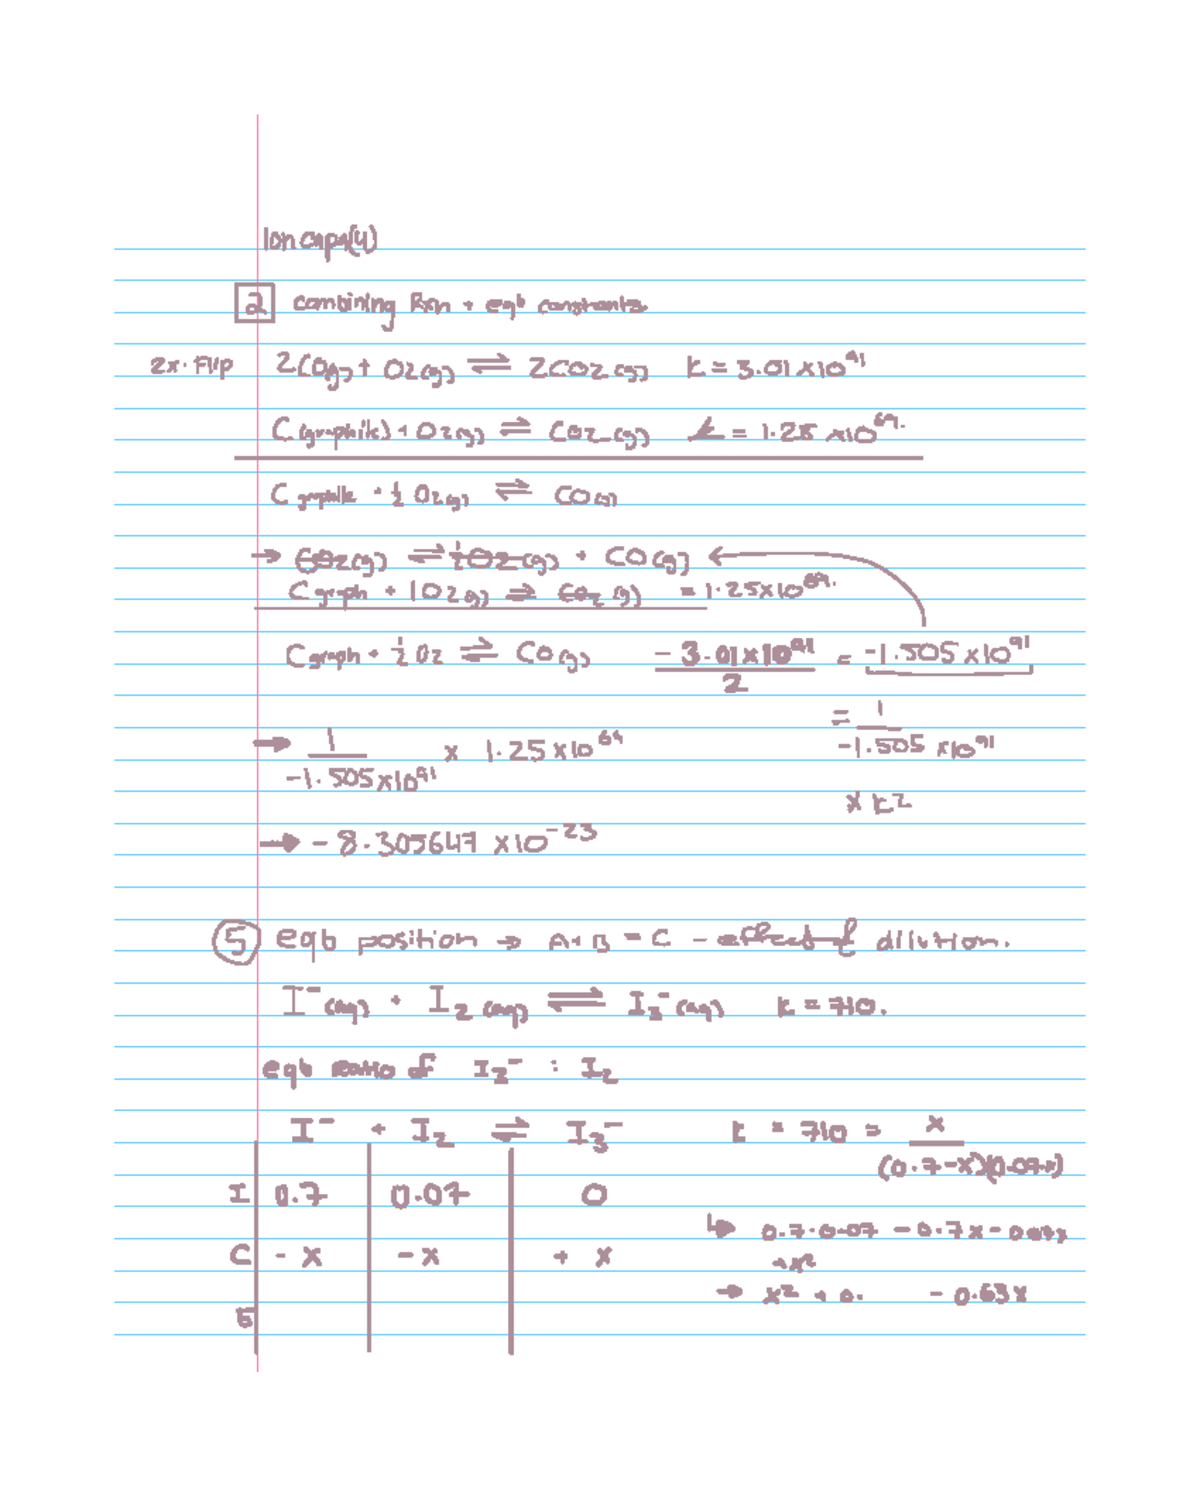 lon capa(4)
2 combining Rxn + eqb constants
2x · Flip 2CO(g) + O2(g) ⇌ 2CO2(g) K = 3.01 x10^91
C(graphite) + O2(g) ⇌ CO2(g) K = 1.25 x10^69.
C graphite + 1/2 O2(g) ⇌ CO(g)
→ CO2(g) ⇌ 1/2 O2(g) + CO(g) ←
C graph + 1O2(g) ⇌ CO2(g) = 1.25x10^69.
C graph + 1/2 O2 ⇌ CO(g) - 3.01x10^91 / 2 = -1.505 x10^91
= 1 / -1.505 x10^91
→ 1 / -1.505x10^91 x 1.25x10^69
x K2
→ - 8.305647 x10^-23
5 eqb position → A + B = C - effect of dilution.
I^-(aq) + I2(aq) ⇌ I3^-(aq) K = 710.
eqb ratio of I3^- : I2
I^- + I2 ⇌ I3^- K = 710 = x / (0.7-x)(0.07-x)
I 0.7 0.07 0
↳ 0.7·0.07 - 0.7x - 0.07x
C - x - x + x
+x²
→ x² + 0. - 0.63x
E